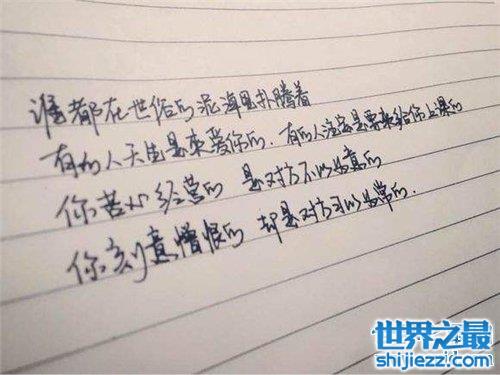 谁都在世俗的泥海里扑腾着
有的人天生是来爱你的.有的人注定是要来给你上课的
你苦心经营的 是对方不以为意的
你刻意憎恨的 却是对方习以为常的.
世界之最
shijiezz.com